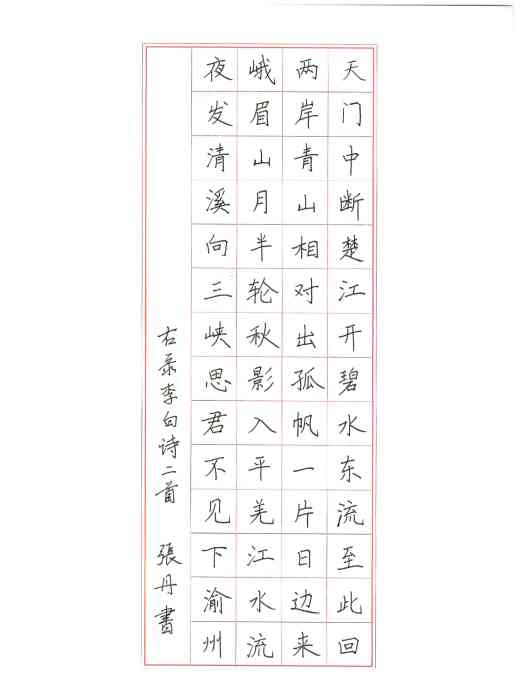 天门中断楚江开碧水东流至此回
两岸青山相对出孤帆一片日边来
峨眉山月半轮秋影入平羌江水流
夜发清溪向三峡思君不见下渝州
右录李白诗二首 張丹書